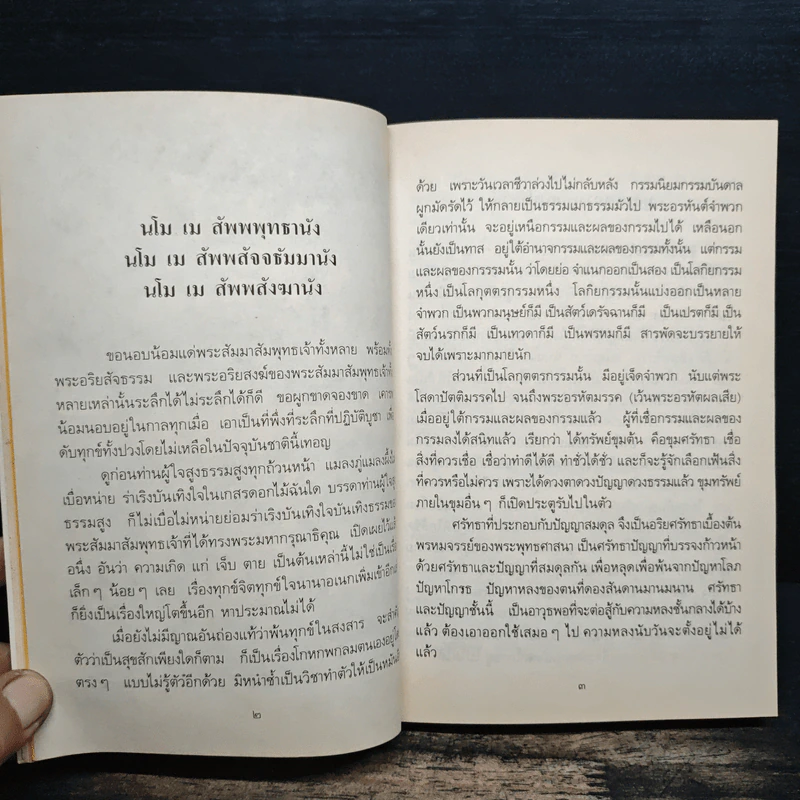 นโม เม สัพพพุทธานัง
นโม เม สัพพสัจจธัมมานัง
นโม เม สัพพสังฆานัง
ขอนอบน้อมแด่พระสัมมาสัมพุทธเจ้าทั้งหลาย
พระอริยสัจธรรม และพระอริยสงฆ์ของพระสัมมาสัมพุทธเจ้า
หลายเหล่านั้นระลึกได้ไม่ระลึกได้ก็ดี ขอผูกขาดจองขาด
น้อมนอบอยู่ในกาลทุกเมื่อ เอาเป็นที่พึ่งที่ระลึกที่ปฏิบัติบูชา
ดับทุกข์ทั้งปวงโดยไม่เหลือในปัจจุบันชาตินี้เทอญ
ดูก่อนท่านผู้ใจสูงธรรมสูงทุกถ้วนหน้า แมลงภู่แมลงผึ้ง
เบื่อหน่าย ร่าเริงบันเทิงใจในเกสรดอกไม้ฉันใด บรรดาท่านผู้
ธรรมสูง ก็ไม่เบื่อไม่หน่ายย่อมร่าเริงบันเทิงใจบันเทิงธรรม
พระสัมมาสัมพุทธเจ้าที่ได้ทรงพระมหากรุณาธิคุณ เปิดเผยไว้
อนึ่ง อันว่า ความเกิด แก่ เจ็บ ตาย เป็นต้นเหล่านี้ไม่ใช่เป็น
เล็กๆ น้อยๆ เลย เรื่องทุกข์จิตทุกข์ใจนานาอเนกเพิ่มเข้าอีก
ก็ยิ่งเป็นเรื่องใหญ่โตขึ้นอีก หาประมาณไม่ได้
เมื่อยังไม่มีญาณอันถ่องแท้ว่าพ้นทุกข์ในสงสาร
ตัวว่าเป็นสุขสักเพียงใดก็ตาม ก็เป็นเรื่องโกหกพกลมตนเองอยู่
ตรงๆ แบบไม่รู้ตัวอีกด้วย มิหนำซ้ำเป็นวิชาทำตัวให้เป็น
๒
ด้วย เพราะวันเวลาชีวาล่วงไปไม่กลับหลัง กรรมนิยมกรรมบันดาล
ผูกมัดรัดไว้ ให้กลายเป็นธรรมเมาธรรมมัวไป พระอรหันต์จำพวก
เดียวเท่านั้น จะอยู่เหนือกรรมและผลของกรรมไปได้ เหลือนอก
นั้นยังเป็นทาส อยู่ใต้อำนาจกรรมและผลของกรรมทั้งนั้น แต่กรรม
และผลของกรรมนั้น ว่าโดยย่อ จำแนกออกเป็นสอง เป็นโลกิยกรรม
หนึ่ง เป็นโลกุตตรกรรมหนึ่ง โลกิยกรรมนั้นแบ่งออกเป็นหลาย
จำพวก เป็นพวกมนุษย์ก็มี เป็นสัตว์เดรัจฉานก็มี เป็นเปรตก็มี เป็น
สัตว์นรกก็มี เป็นเทวดาก็มี เป็นพรหมก็มี สารพัดจะบรรยายให้
จบได้เพราะมากมายนัก
ส่วนที่เป็นโลกุตตรกรรมนั้น มีอยู่เจ็ดจำพวก นับแต่พระ
โสดาปัตติมรรคไป จนถึงพระอรหัตมรรค (เว้นพระอรหัตผลเสีย)
เมื่ออยู่ใต้กรรมและผลของกรรมแล้ว ผู้ที่เชื่อกรรมและผลของ
กรรมลงได้สนิทแล้ว เรียกว่า ได้ทรัพย์ขุมต้น คือขุมศรัทธา เชื่อ
สิ่งที่ควรเชื่อ เชื่อว่าทำดีได้ดี ทำชั่วได้ชั่ว และก็จะรู้จักเลือกเฟ้นสิ่ง
ที่ควรหรือไม่ควร เพราะได้ดวงตาดวงปัญญาดวงธรรมแล้ว ขุมทรัพย์
ภายในขุมอื่นๆ ก็เปิดประตูรับไปในตัว
ศรัทธาที่ประกอบกับปัญญาสมดุล จึงเป็นอริยศรัทธาเบื้องต้น
พรหมจรรย์ของพระพุทธศาสนา เป็นศรัทธาปัญญาที่บรรจงก้าวหน้า
ด้วยศรัทธาและปัญญาที่สมดุลกัน เพื่อหลุดเพื่อพ้นจากปัญหาโลภ
ปัญหาโกรธ ปัญหาหลงของตนที่ดองสันดานมานมนาน ศรัทธา
และปัญญาชั้นนี้ เป็นอาวุธพอที่จะต่อสู้กับความหลงชั้นกลางได้บ้าง
แล้ว ต้องเอาออกใช้เสมอๆ ไป ความหลงนับวันจะตั้งอยู่ไม่ได้
แล้ว
๓